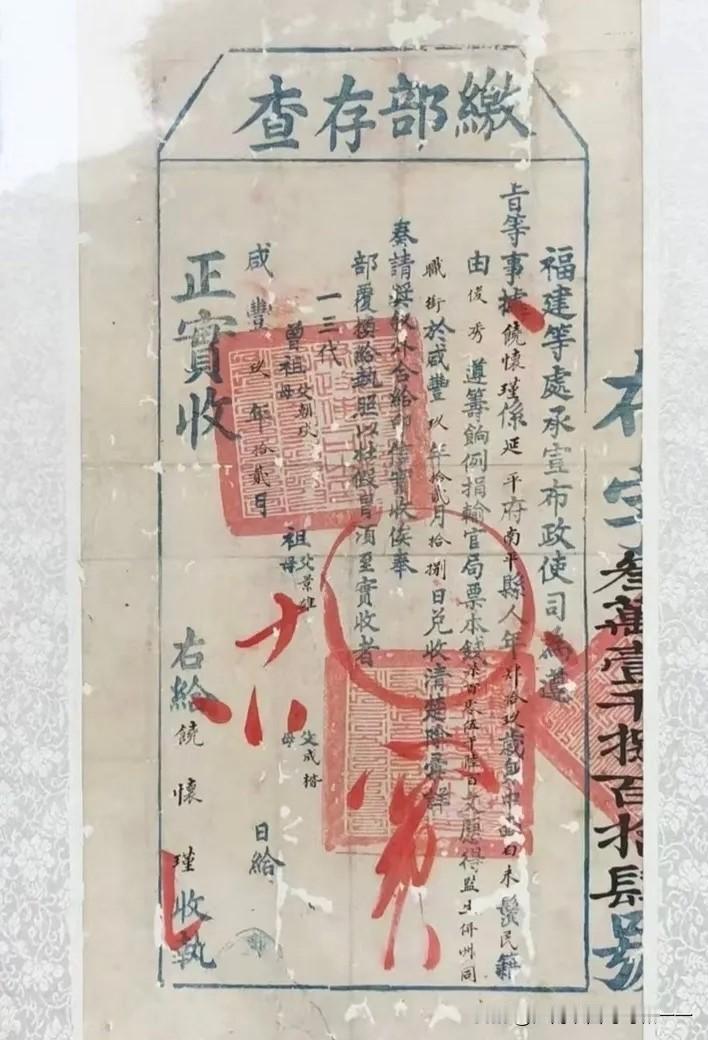 繳部存查
字叁萬壹千捌百拾肆號
福建等處承宣布政使司為遵
旨等事據饒懷瑾係延平府南平縣人年肆拾玖歲身中面白未鬚民籍
由俊秀遵籌餉例捐輸官局票本錢伍千陸百文願得監生併州同
職銜於咸豐玖年拾貳月拾捌日兌收清楚除彙詳
奏請獎敘外合給印信實收俟奉
部覆換給執照以杜假冒須至實收者
一三代
曾祖父朝玖母 祖父景雄母 父成楷母
咸豐玖年拾貳月十八日給
正實收 右給饒懷瑾收執